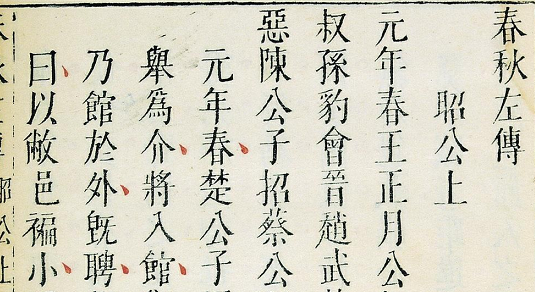 春秋左傳
昭公上
元年春王正月公
叔孫豹會晉趙武
惡陳公子招蔡公
元年春楚公子
舉爲介將入館
乃館於外旣聘
曰以敝邑褊小